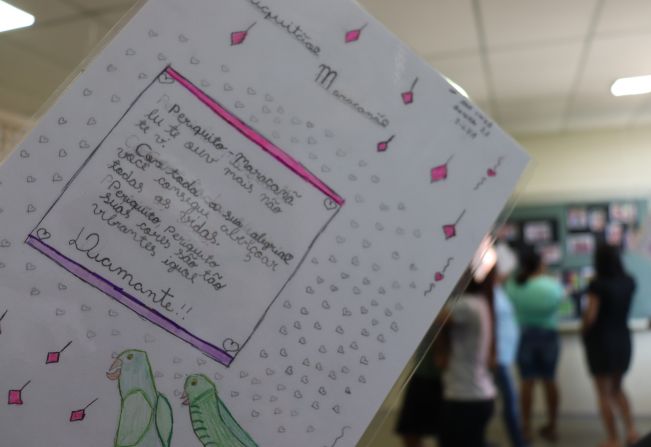 Maracanã
Periquito-Maracanã
Eu te ouvi mais não
te v.
Com toda a sua alegria
você consegui abençoar
todas as vidas.
Periquito, Periquito
suas cores são tão
vibrantes, igual
Diamante!!